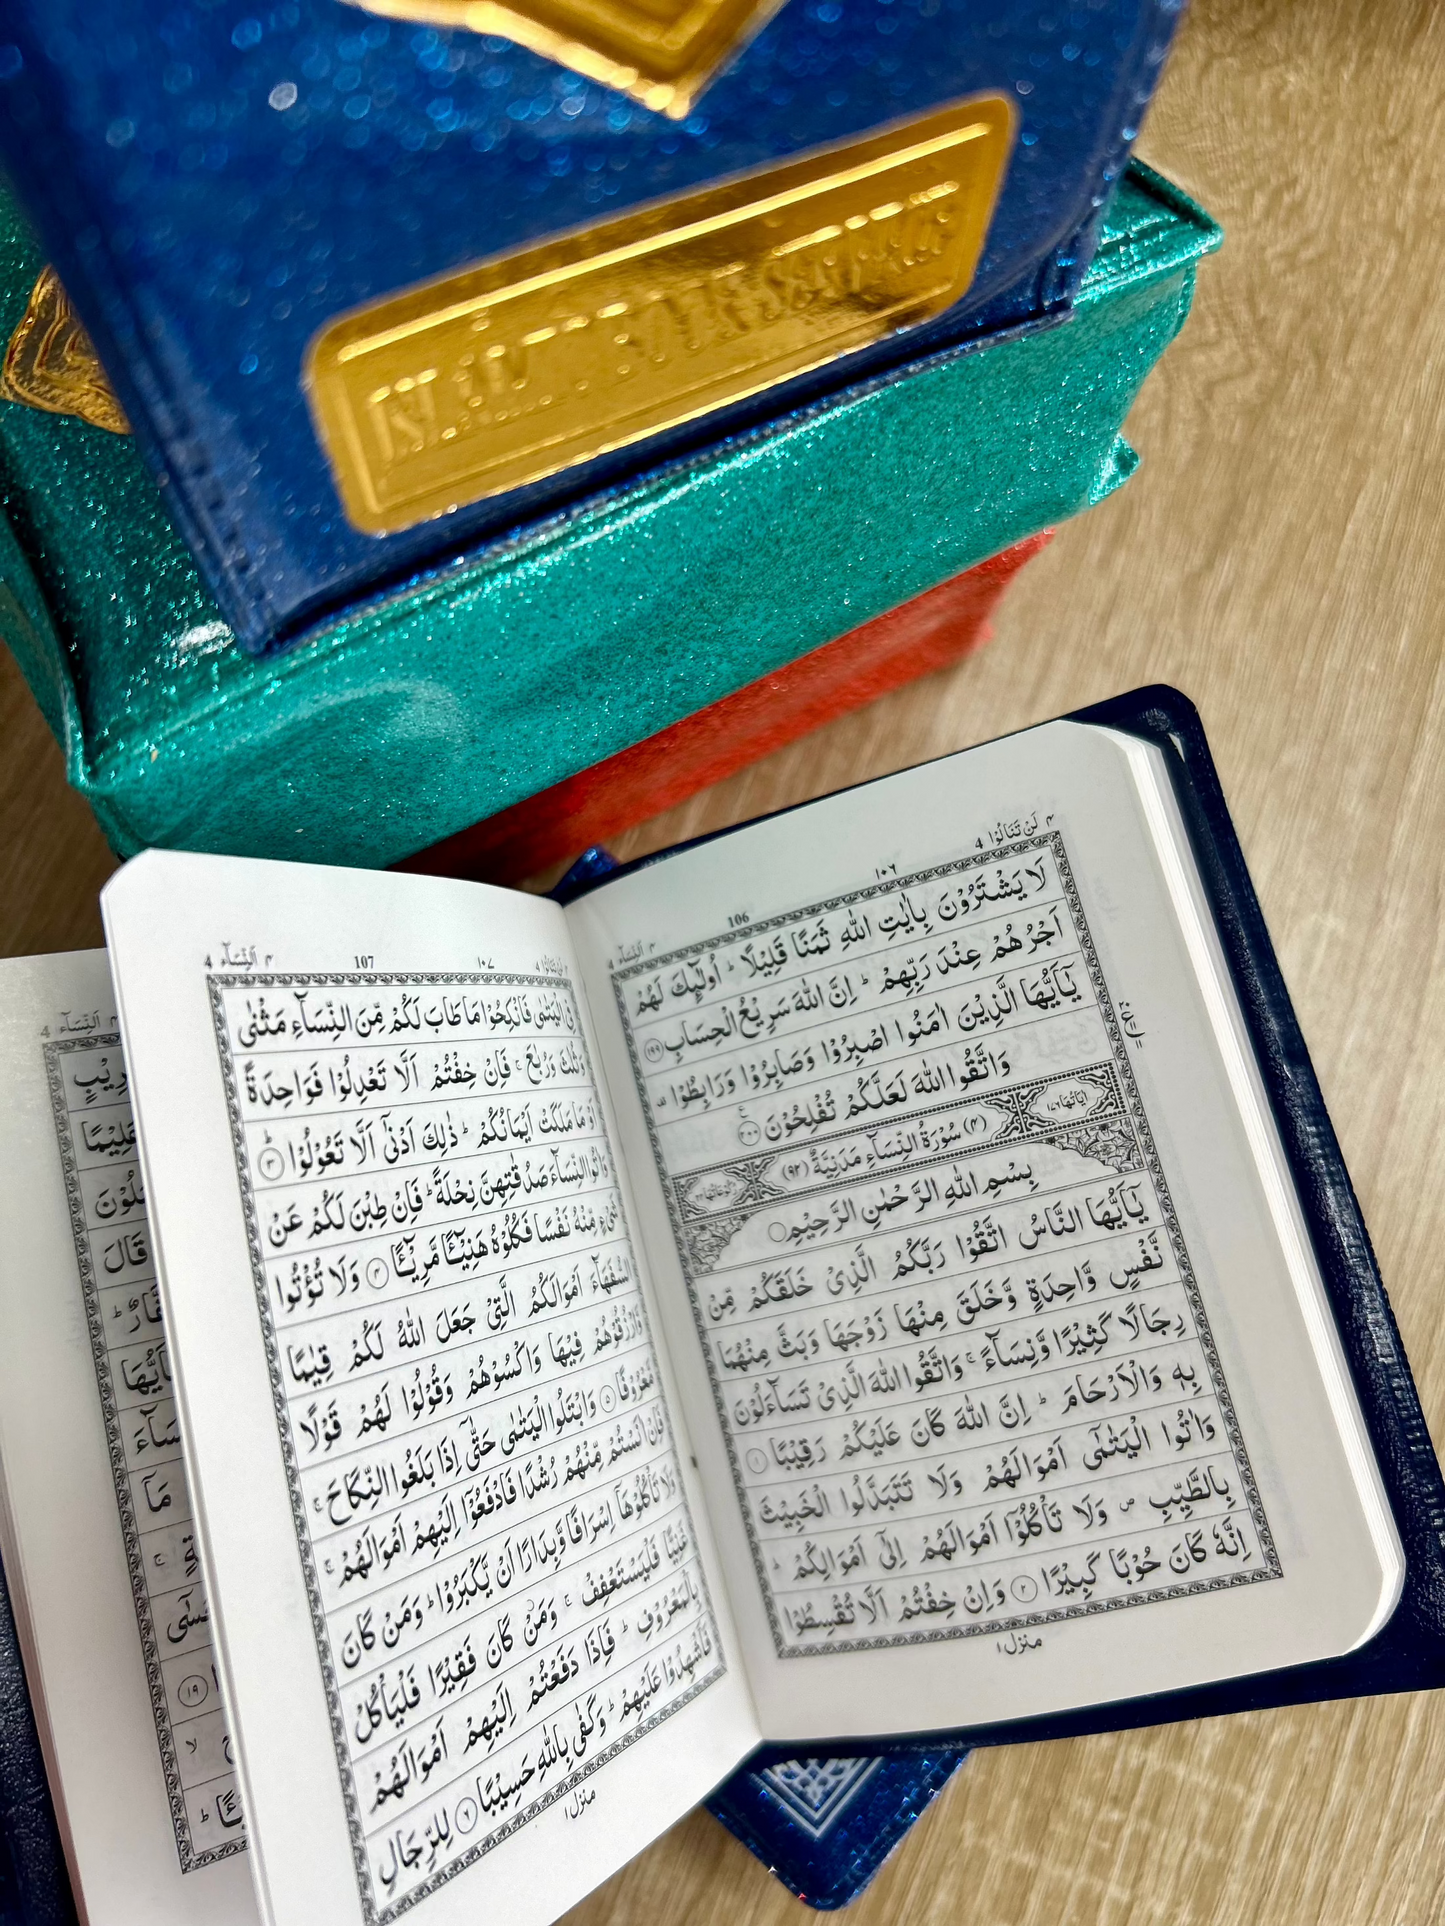 ٤ لَنْ تَنَالُوْا 4
١٠٦
106
٤ اَلنِّسَآء 4
لَا يَشْتَرُوْنَ بِاٰيٰتِ اللّٰهِ ثَمَنًا قَلِيْلًا ؕ اُولٰٓئِكَ لَهُمْ
اَجْرُهُمْ عِنْدَ رَبِّهِمْ ؕ اِنَّ اللّٰهَ سَرِيْعُ الْحِسَابِ ﴿١٩٩﴾
يٰۤاَيُّهَا الَّذِيْنَ اٰمَنُوا اصْبِرُوْا وَصَابِرُوْا وَرَابِطُوْا ۟
وَاتَّقُوا اللّٰهَ لَعَلَّكُمْ تُفْلِحُوْنَ ﴿٢٠٠﴾
اٰيَاتُهَا ١٧٦
(٤) سُوْرَةُ النِّسَآءِ مَدَنِيَّةٌ (٩٢)
بِسْمِ اللّٰهِ الرَّحْمٰنِ الرَّحِيْمِ
يٰۤاَيُّهَا النَّاسُ اتَّقُوْا رَبَّكُمُ الَّذِيْ خَلَقَكُمْ مِّنْ
نَّفْسٍ وَّاحِدَةٍ وَّخَلَقَ مِنْهَا زَوْجَهَا وَبَثَّ مِنْهُمَا
رِجَالًا كَثِيْرًا وَّنِسَآءً ۚ وَاتَّقُوا اللّٰهَ الَّذِيْ تَسَآءَلُوْنَ
بِهٖ وَالْاَرْحَامَ ؕ اِنَّ اللّٰهَ كَانَ عَلَيْكُمْ رَقِيْبًا ﴿١﴾
وَاٰتُوا الْيَتٰمٰۤى اَمْوَالَهُمْ وَلَا تَتَبَدَّلُوا الْخَبِيْثَ
بِالطَّيِّبِ ۪ وَلَا تَاْكُلُوْۤا اَمْوَالَهُمْ اِلٰۤى اَمْوَالِكُمْ ؕ
اِنَّهٗ كَانَ حُوْبًا كَبِيْرًا ﴿٢﴾ وَاِنْ خِفْتُمْ اَلَّا تُقْسِطُوْا
منزل ١
٤ لن تنالوا 4
١٠٧
107
٤ اَلنِّسَآء 4
فِي الْيَتٰمٰى فَانْكِحُوْا مَا طَابَ لَكُمْ مِّنَ النِّسَآءِ مَثْنٰى
وَثُلٰثَ وَرُبٰعَ ۚ فَاِنْ خِفْتُمْ اَلَّا تَعْدِلُوْا فَوَاحِدَةً
اَوْ مَا مَلَكَتْ اَيْمَانُكُمْ ؕ ذٰلِكَ اَدْنٰۤى اَلَّا تَعُوْلُوْا ﴿٣﴾
وَاٰتُوا النِّسَآءَ صَدُقٰتِهِنَّ نِحْلَةً ؕ فَاِنْ طِبْنَ لَكُمْ عَنْ
شَيْءٍ مِّنْهُ نَفْسًا فَكُلُوْهُ هَنِيْٓـًٔا مَّرِيْٓـًٔا ﴿٤﴾ وَلَا تُؤْتُوا
السُّفَهَآءَ اَمْوَالَكُمُ الَّتِيْ جَعَلَ اللّٰهُ لَكُمْ قِيٰمًا
وَّارْزُقُوْهُمْ فِيْهَا وَاكْسُوْهُمْ وَقُوْلُوْا لَهُمْ قَوْلًا
مَّعْرُوْفًا ﴿٥﴾ وَابْتَلُوا الْيَتٰمٰى حَتّٰۤى اِذَا بَلَغُوا النِّكَاحَ ۚ
فَاِنْ اٰنَسْتُمْ مِّنْهُمْ رُشْدًا فَادْفَعُوْۤا اِلَيْهِمْ اَمْوَالَهُمْ ۚ
وَلَا تَاْكُلُوْهَاۤ اِسْرَافًا وَّبِدَارًا اَنْ يَّكْبَرُوْا ؕ وَمَنْ كَانَ
غَنِيًّا فَلْيَسْتَعْفِفْ ۚ وَمَنْ كَانَ فَقِيْرًا فَلْيَاْكُلْ
بِالْمَعْرُوْفِ ؕ فَاِذَا دَفَعْتُمْ اِلَيْهِمْ اَمْوَالَهُمْ
فَاَشْهِدُوْا عَلَيْهِمْ ؕ وَكَفٰى بِاللّٰهِ حَسِيْبًا ﴿٦﴾ لِلرِّجَالِ
منزل ١
٤ اَلنِّسَآء 4
قَالَ
مَاۤ
﴿١٩﴾